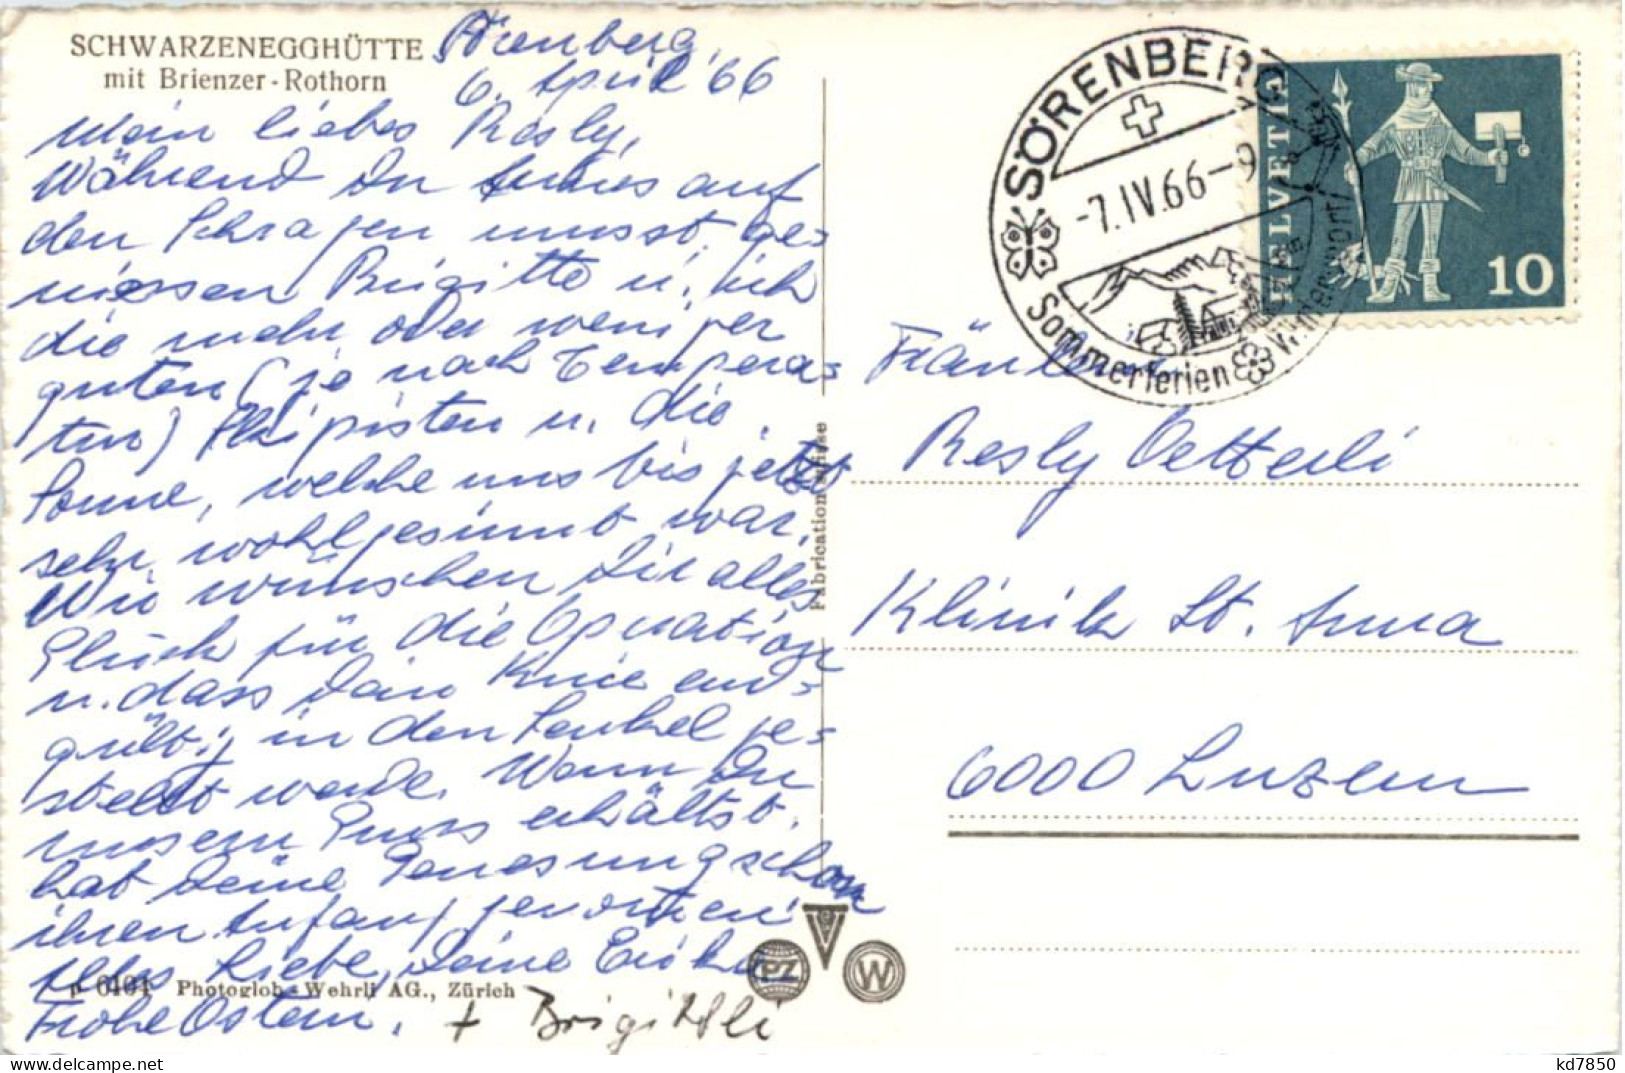 SCHWARZENEGGHÜTTE
mit Brienzer-Rothorn
Sörenberg,
6. April '66
Mein liebes Resly,
Während Du
auf
den Schragen musst, ge=
niessen Brigitte u. ich
die mehr oder weniger
guten (je nach Tempera=
tur) Skipisten u. die
Sonne, welche uns bis jetzt
sehr wohlgesinnt war.
Wir wünschen Dir alles
Glück für die Operation
u. dass Dein Knie end=
gültig in den Senkel ge=
stellt werde. Wenn Du
unsern Gruss erhältst,
hat Deine Genesung schon
ihren Anfang genommen.
Alles Liebe, Deine Erika
Frohe Ostern. + Brigittli
P 6404 Photoglob-Wehrli AG., Zürich
Fabrication suisse
PZ
W
SÖRENBERG
-7.IV.66-9
Sommerferien
Wintersport
HELVETIA
10
Fräulein
Resly Oetterli
Klinik St. Anna
6000 Luzern
kd7850